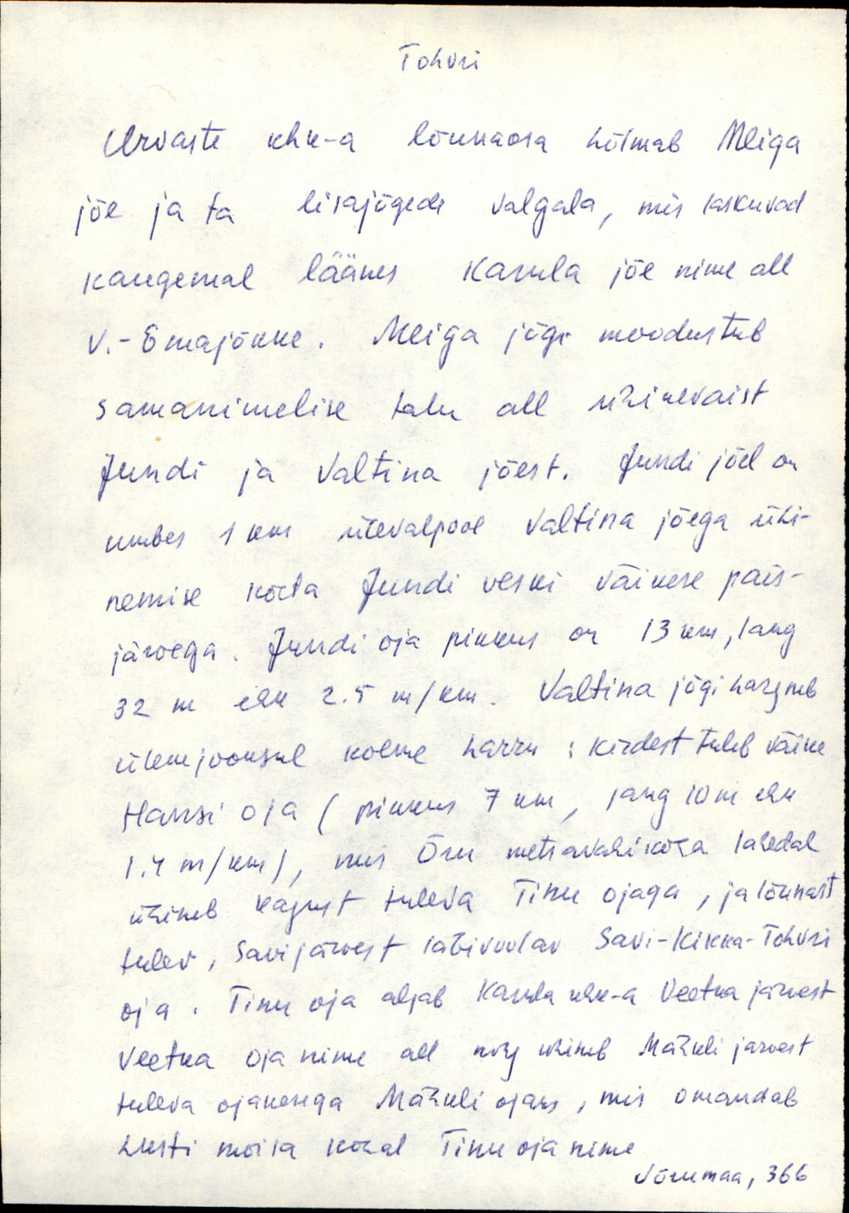 Tohvri
Urvaste khk-a lõunaosa hõlmab Meiga
jõe ja ta lisajõgede valgala, mis laskuvad
kaugemal läänes Karula jõe nime all
V.-Emajõkke. Meiga jõgi moodustub
samanimelise talu all ühinevaist
Jundi ja Valtina jõest. Jundi jõel on
umbes 1 km ülevalpool Valtina jõega ühi-
nemise kohta Jundi veski väikese pais-
järvega. Jundi oja pikkus on 13 km, lang
32 m ehk 2.5 m/km. Valtina jõgi hargneb
ülemjooksul kolme harru: kirdest tuleb väike
Hansi oja (pikkus 7 km, lang 10 m ehk
1.4 m/km), mis Õru metsavahikoha lähedal
ühineb kagust tuleva Tinu ojaga, ja lõunast
tulev, Savijärvest läbivoolav Savi-Kikka-Tohvri
oja. Tinu oja algab Karula khk-a Veetka järvest
Veetka oja nime all ning ühineb Mähkli järvest
tuleva ojakesega Mähkli ojaks, mis omandab
mõisa kohal Tinu oja nime
Võrumaa, 366